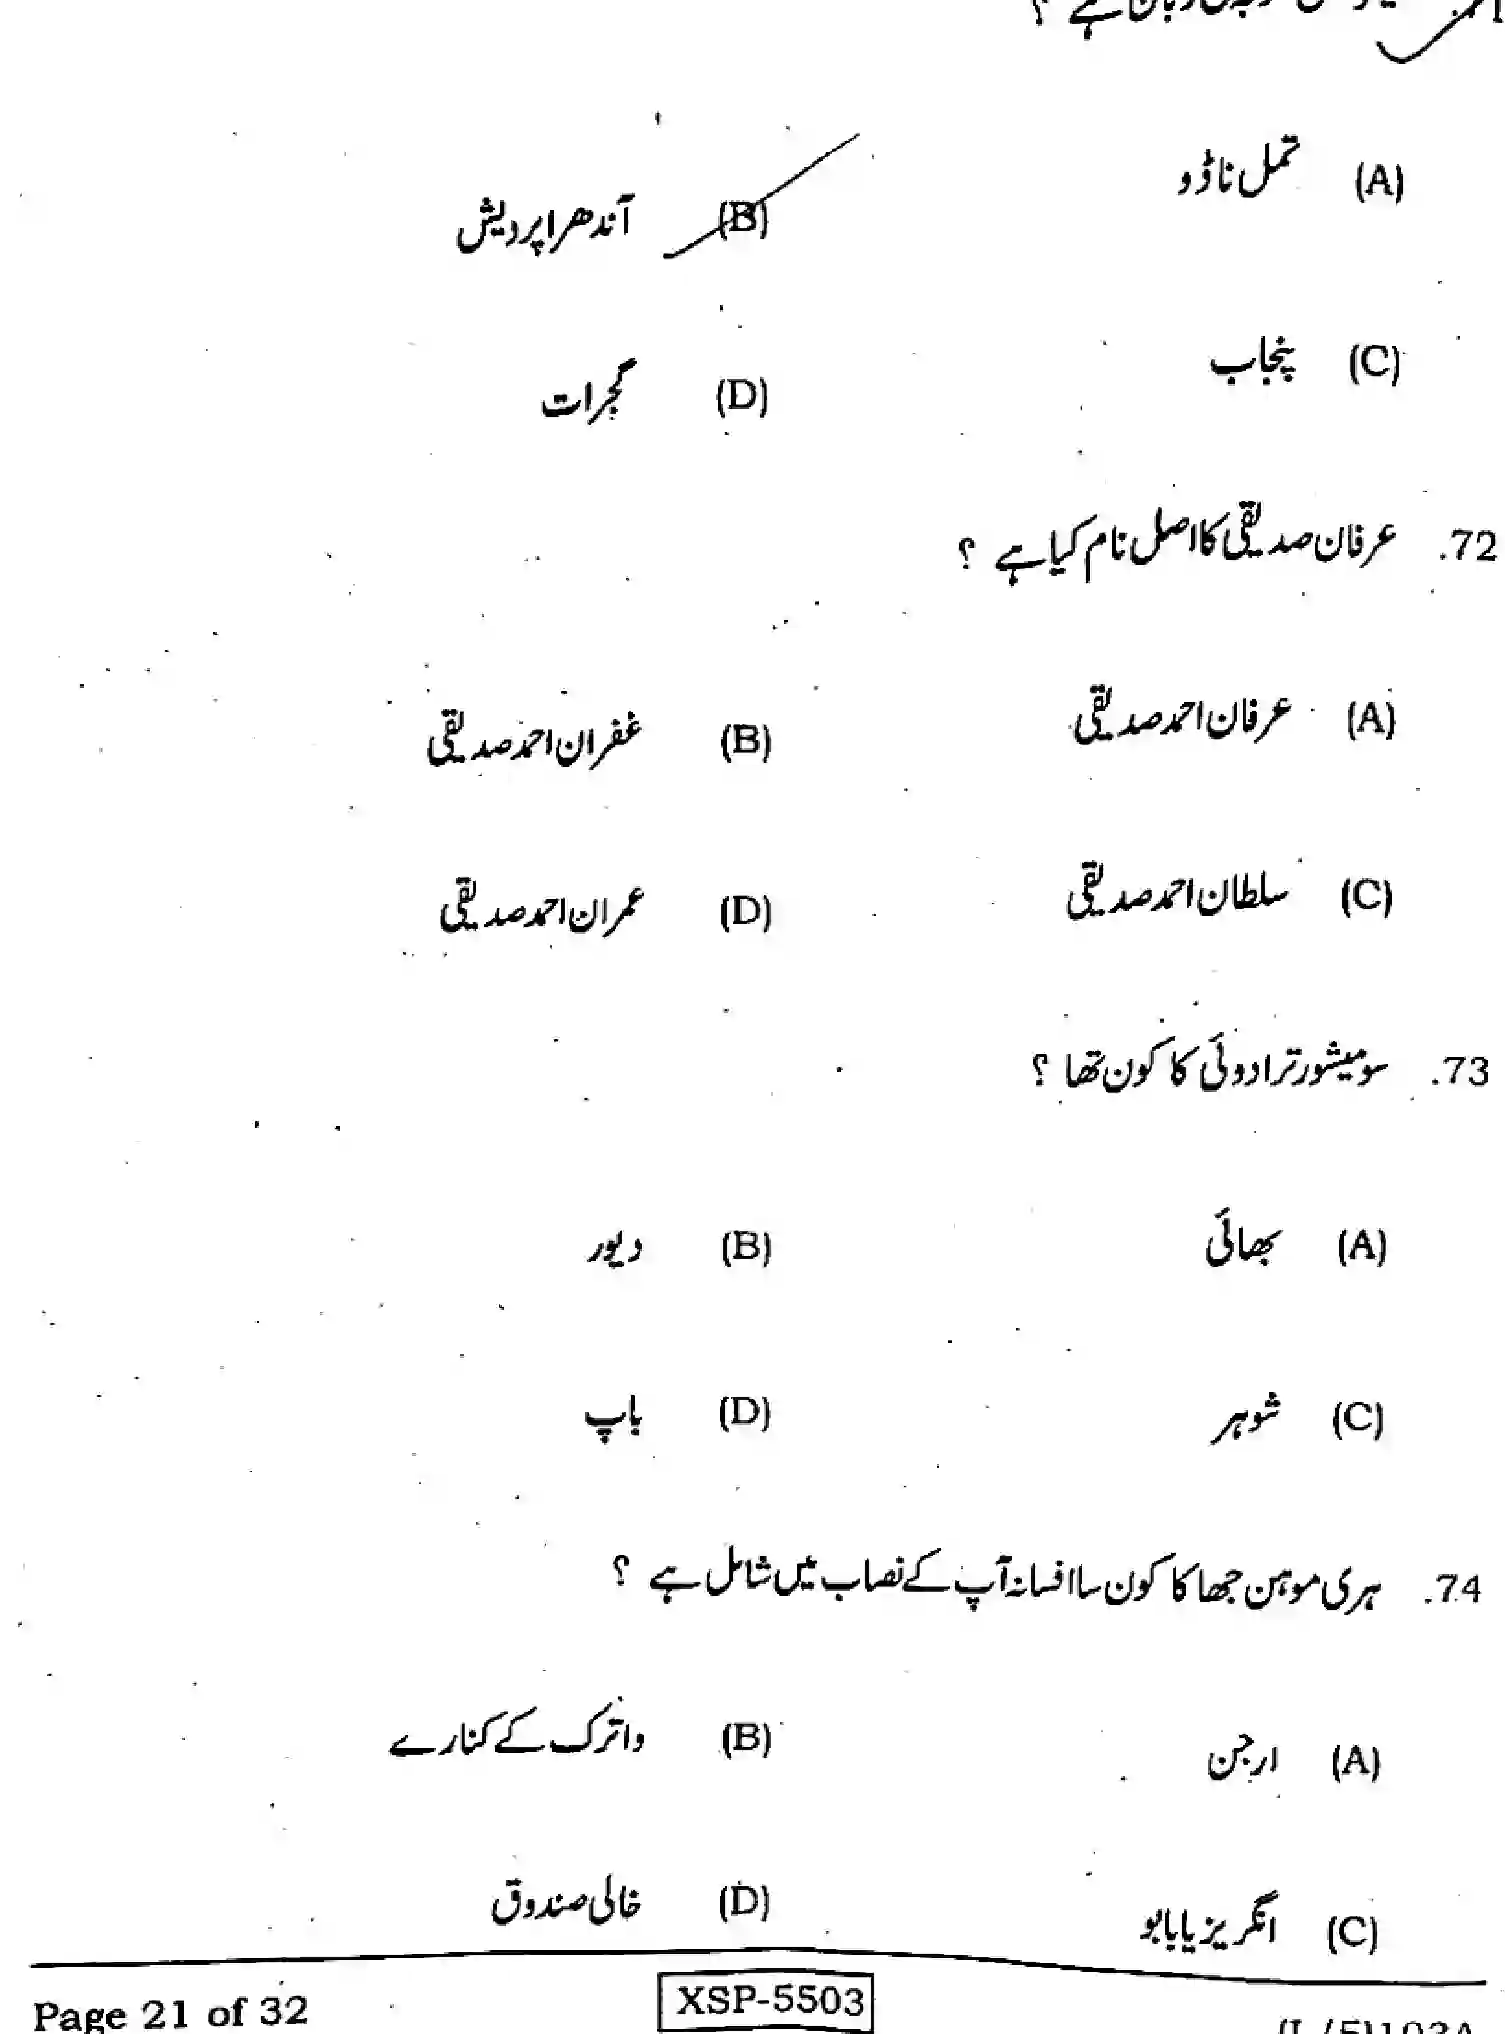 زبان ہے ؟
(A) تمل ناڈو
(B) آندھرا پردیش
(C) پنجاب
(D) گجرات
72. عرفان صدیقی کا اصل نام کیا ہے ؟
(A) عرفان احمد صدیقی
(B) غفران احمد صدیقی
(C) سلطان احمد صدیقی
(D) عمران احمد صدیقی
73. سومیشور ترا دوئی کا کون تھا ؟
(A) بھائی
(B) دیور
(C) شوہر
(D) باپ
74. ہری موہن جھا کا کون سا افسانہ آپ کے نصاب میں شامل ہے ؟
(A) ارجن
(B) واترک کے کنارے
(C) انگریزیا بابو
(D) خالی صندوق
Page 21 of 32
XSP-5503